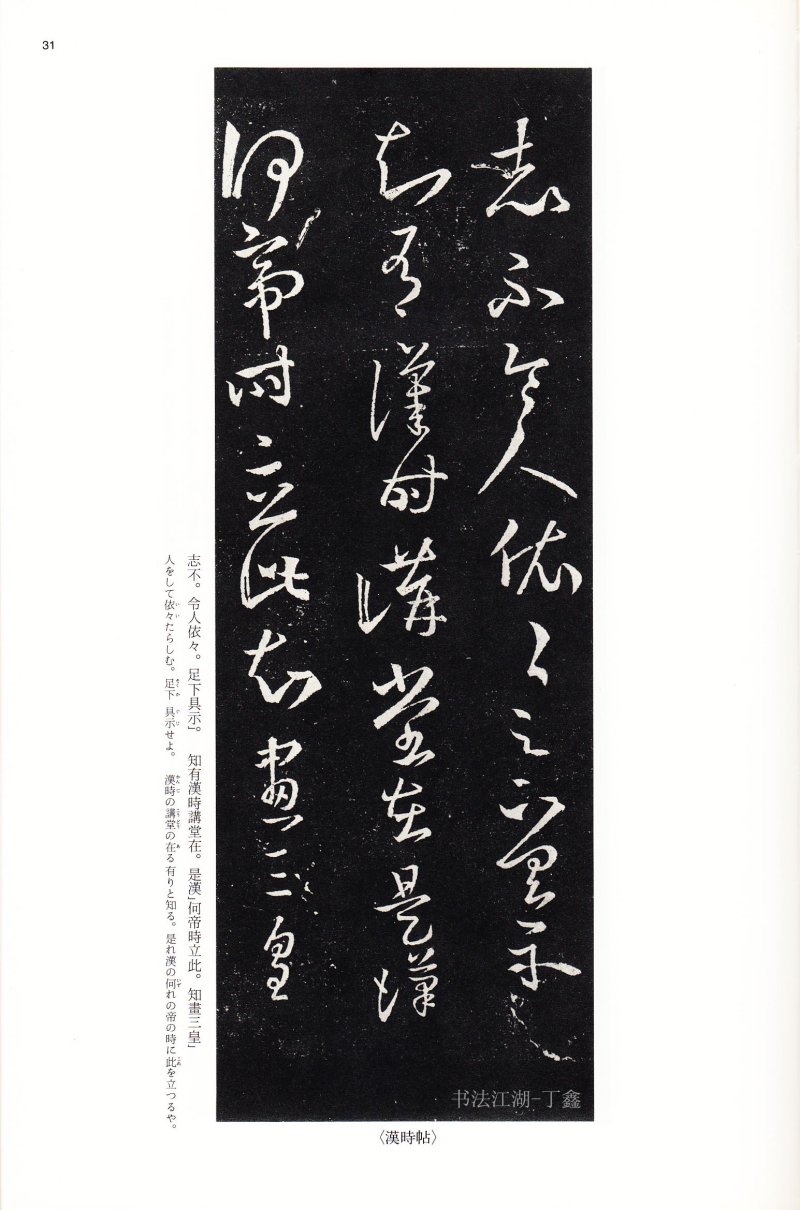 31
志不令人依々足下具示
知有漢時講堂在是漢
何帝時立此知畫三皇
書法江湖-丁鑫
〈漢時帖〉
志不。令人依々。足下具示」。 知有漢時講堂在。是漢」何帝時立此。知畫三皇」
人をして依々たらしむ。足下 具示せよ。 漢時の講堂の在る有りと知る。是れ漢の何れの帝の時に此を立つるや。